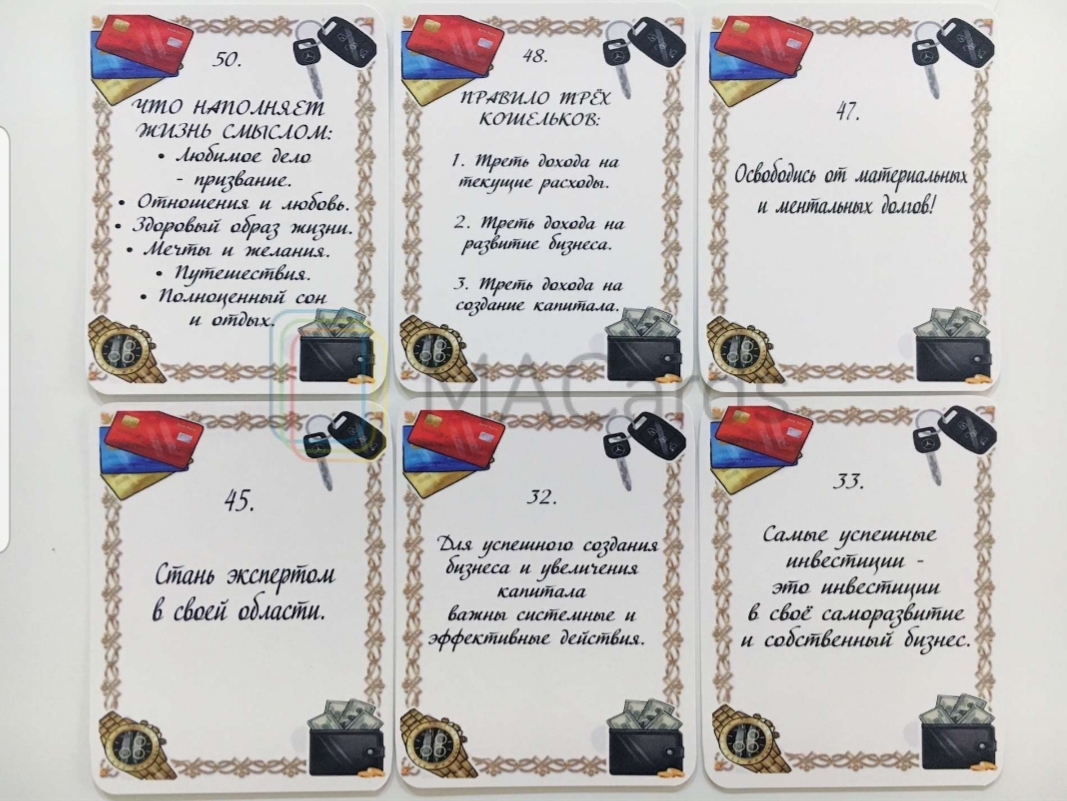 50.
ЧТО НАПОЛНЯЕТ
ЖИЗНЬ СМЫСЛОМ:
• Любимое дело
- призвание.
• Отношения и любовь.
• Здоровый образ жизни.
• Мечты и желания.
• Путешествия.
• Полноценный сон
и отдых.
48.
ПРАВИЛО ТРЁХ
КОШЕЛЬКОВ:
1. Треть дохода на
текущие расходы.
2. Треть дохода на
развитие бизнеса.
3. Треть дохода на
создание капитала.
47.
Освободись от материальных
и ментальных долгов!
MACards
45.
Стань экспертом
в своей области.
32.
Для успешного создания
бизнеса и увеличения
капитала
важны системные и
эффективные действия.
33.
Самые успешные
инвестиции -
это инвестиции
в своё саморазвитие
и собственный бизнес.